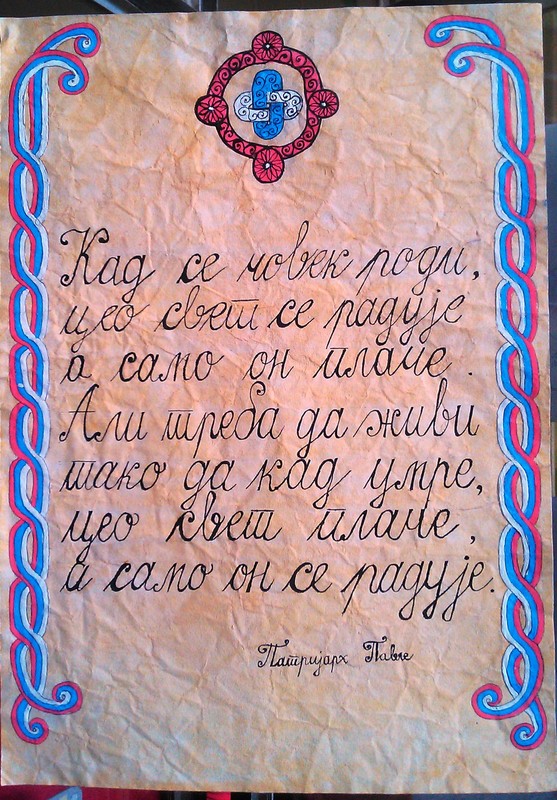 Кад се човек роди,
цео свет се радује
а само он плаче.
Али треба да живи
тако да кад умре,
цео свет плаче,
а само он се радује.
Патријарх Павле